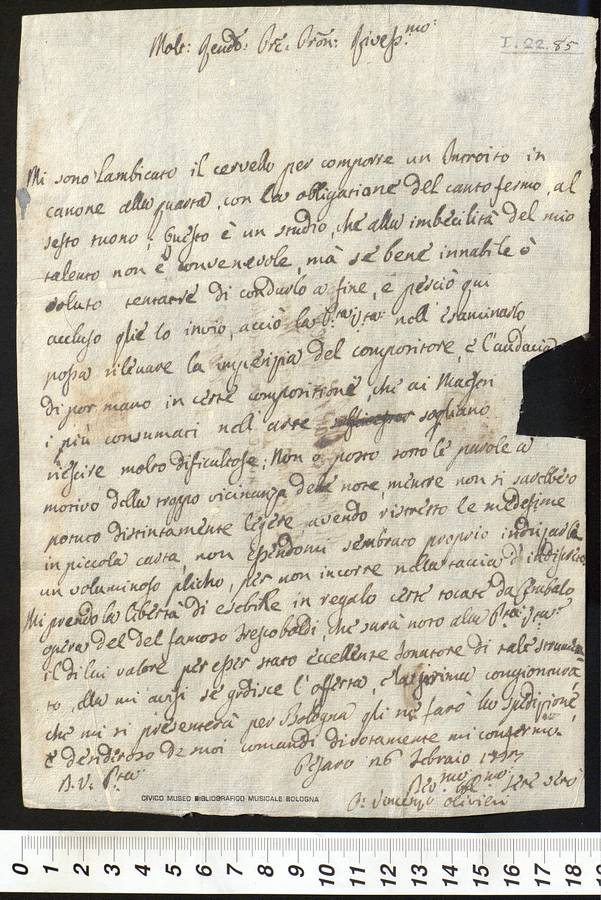 Molt: Rendo: Pre: Pron: Rivess:mo
I. 22. 85
Mi sono lambicato il cervello per comporre un Introito in
canone alla quarta, con la obligatione del canto fermo, al
sesto tuono; Questo è un studio, che alla imbecilità del mio
talento non è convenevole, mà se bene innabile ò
voluto tentarne di condurlo a fine, e perciò qui
accluso glie lo invio, acciò la P.tà V.ra nell'esaminarlo
possa rilevare la imperizia del compositore, e l'audacia
di por mano in certe compositioni, che ai Maestri
i più consumati nell'arte sogliono
riescire molto dificultose; Non ò posto sotto le parole a
motivo della troppo vicinanza delle note, mentre non si sarebbero
potuto distintamente legere avendo ristretto le medesime
in piccola carta, non essendomi sembrato proprio indrizarle
un voluminoso plicho, per non incorre nella taccia d'indiscreto
Mi prendo la libertà di esebirle in regalo certe tocate da Cembalo
opera del del famoso Frescobaldi, che sarà noto alla P.tà V.ra
il di lui valore per esser stato eccellente sonatore di tale strumen
to, ella mi avisi se gradisce l'offerta, e la prima congiontura
che mi si presenterà per Bologna gli ne farò la spedizione,
e desideroso de suoi comandi divotamente mi confermo.
D. V. P.tà
Pesaro 26 Febraio
Dev.mo Obl.mo Serv. vero
D. Vincenzo Olivieri
CIVICO MUSEO BIBLIOGRAFICO MUSICALE BOLOGNA
0 1 2 3 4 5 6 7 8 9 10 11 12 13 14 15 16 17 18